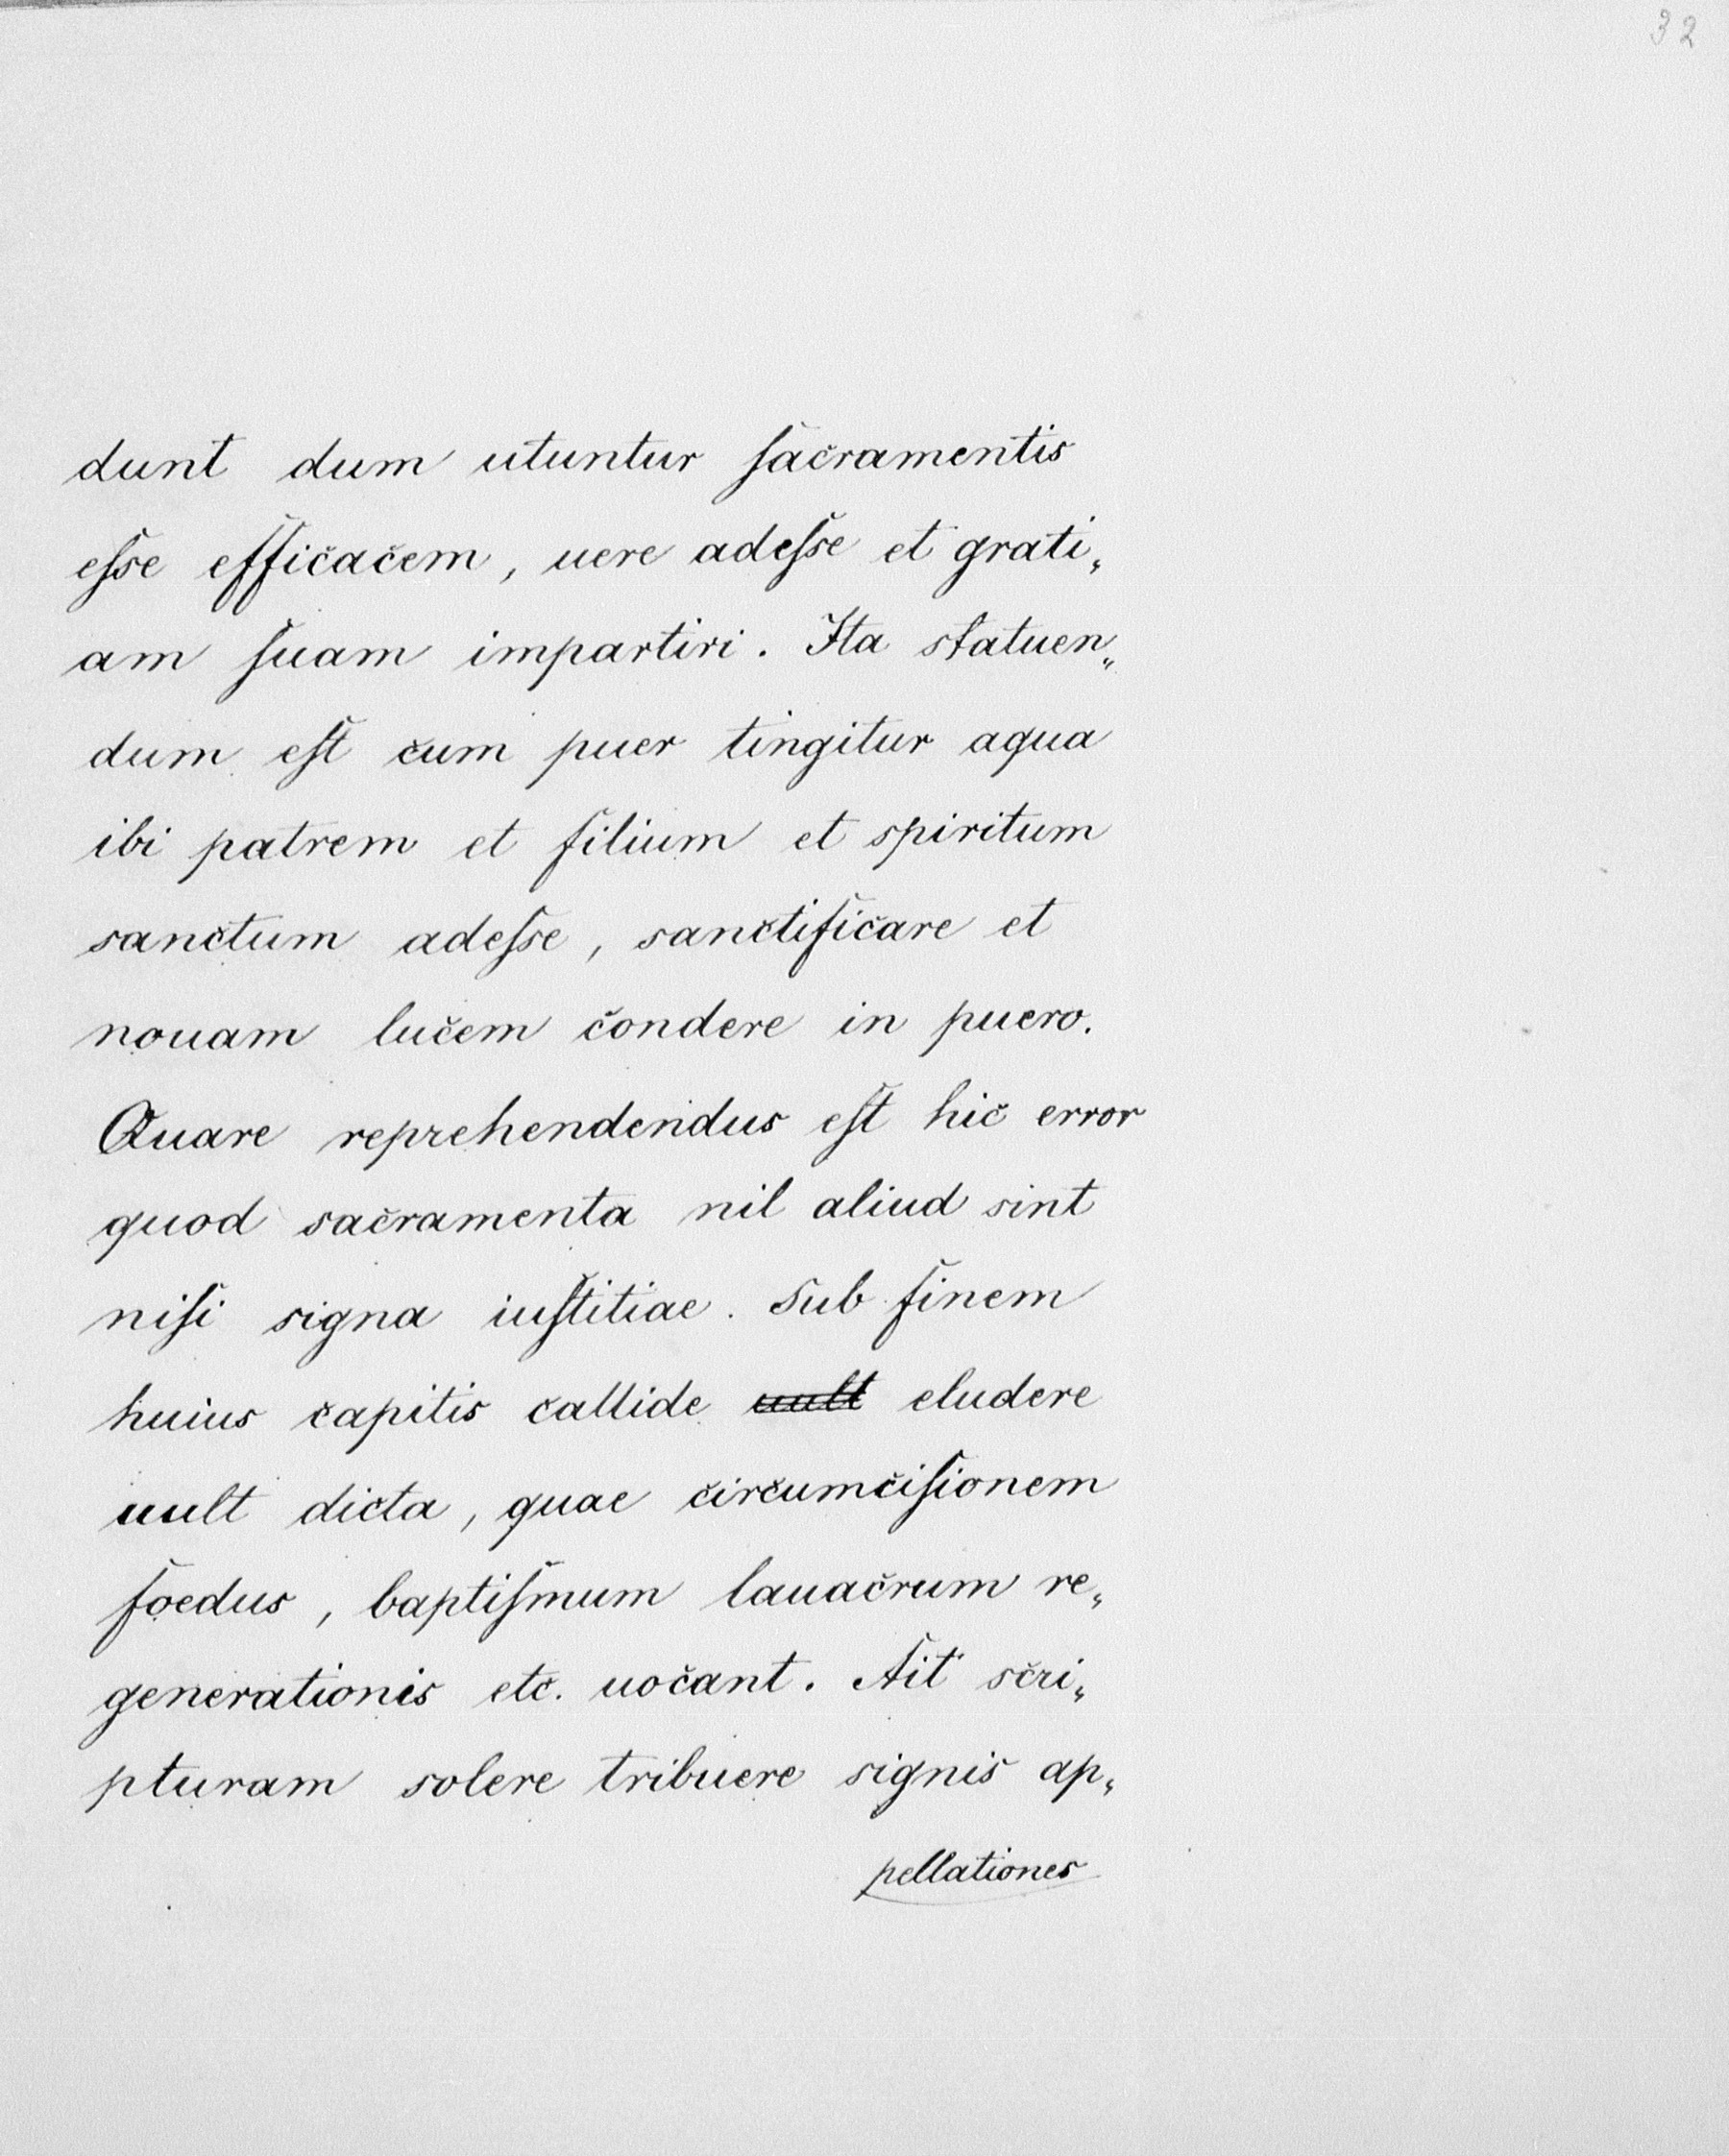 32
dunt dum utuntur ſacramentis
eſse efficacem, uere adeſse et grati„
am ſuam impartiri. Ita statuen„
dum eſt cum puer tingitur aqua
ibi patrem et filium et spiritum
sanctum adeſse, sanctificare et
nouam lucem condere in puero.
Quare reprehendendus eſt hic error
quod sacramenta nil aliud sint
niſi signa iuſtitiae. Sub finem
huius capitis callide uult eludere
uult dicta, quae circumciſionem
foedus, baptiſmum lauacrum re„
generationis etc. uocant. Ait scri„
pturam solere tribuere signis ap„
pellationes